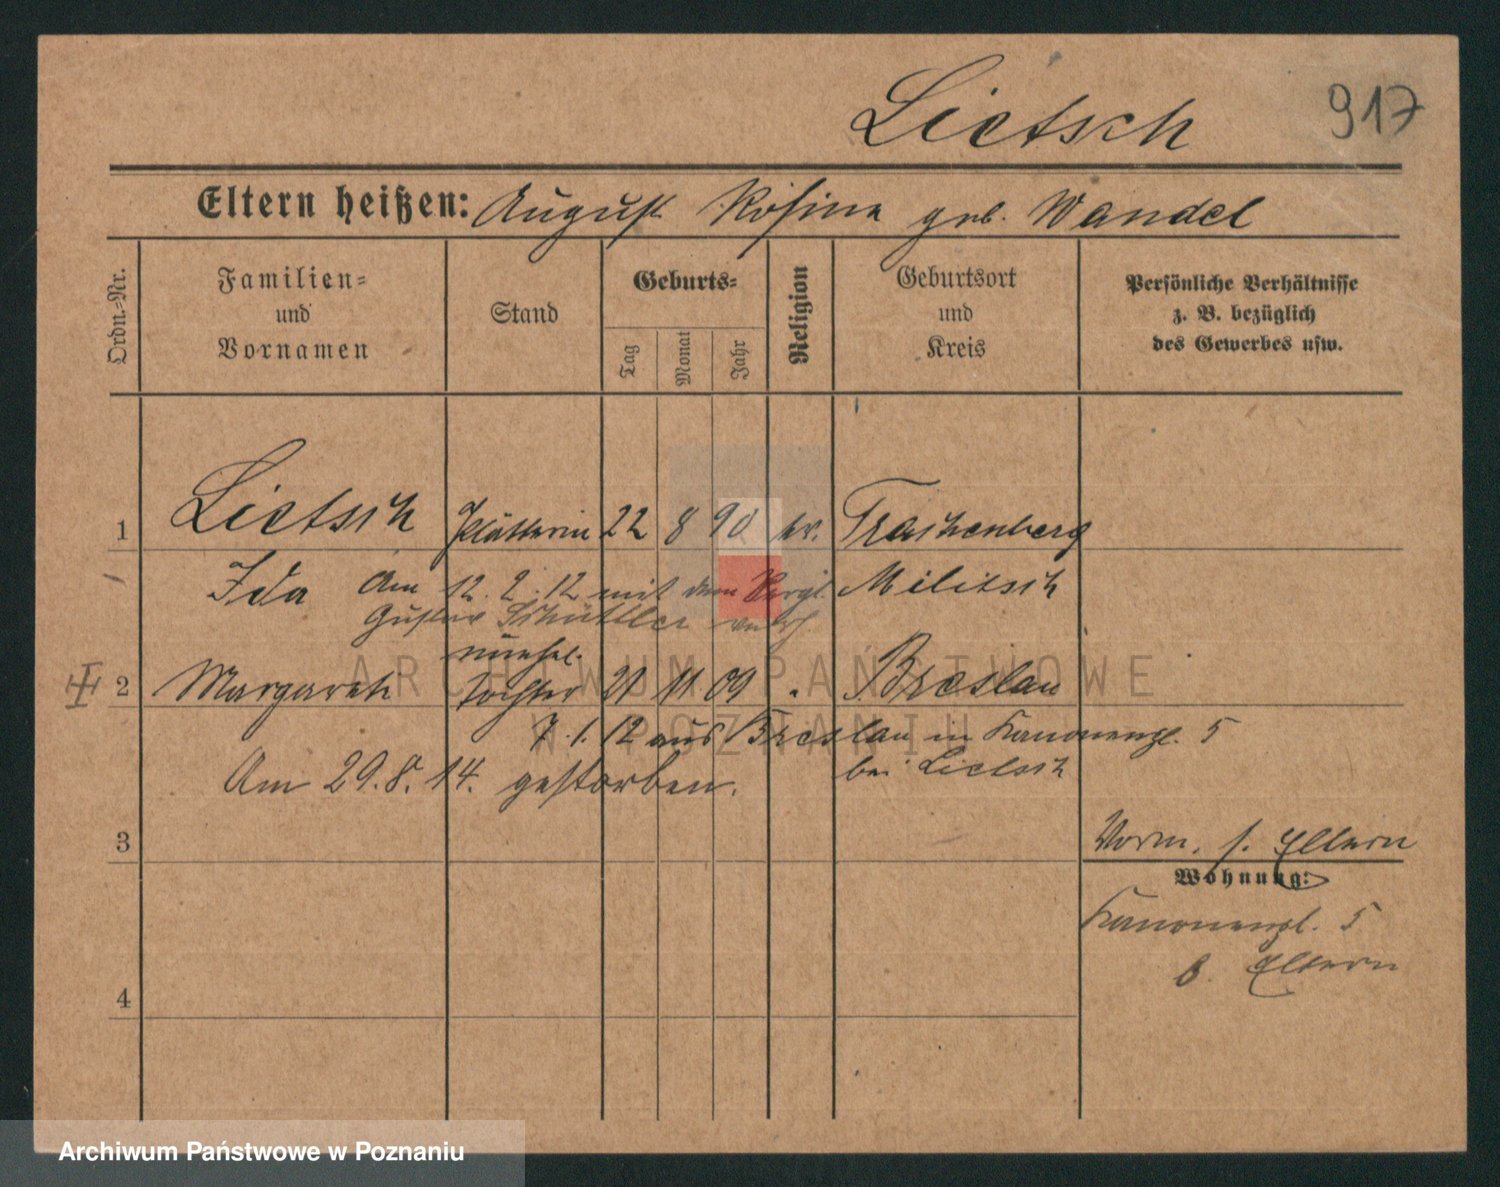 Lietsch 917
Eltern heißen: August Rosina geb. Wandel
Ordn.-Nr.
Familien-
und
Vornamen
Stand
Geburts-
Tag
Monat
Jahr
Religion
Geburtsort
und
Kreis
Persönliche Verhältnisse
z. B. bezüglich
des Gewerbes usw.
1 Lietsch Plätterin 22 8 90 kv. Trachenberg
Ida Am 12. 2. 12 mit dem Militsch
Gustav Schüttler
unehel.
2 Margareth Tochter 21 11 09 " Breslau
7. 1. 12 aus Breslau in Kanonenpl. 5
bei Lietsch
Am 29. 8. 14. gestorben.
3
Vorm. s. Eltern
Wohnung:
Kanonenpl. 5
b. Eltern
4
ARCHIWUM PAŃSTWOWE
W POZNANIU
Archiwum Państwowe w Poznaniu